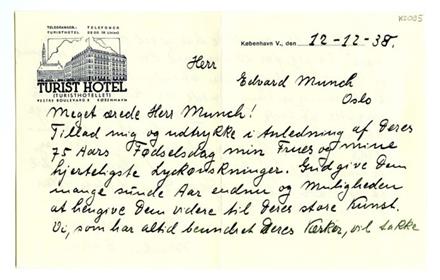 K2005
TELEGRAMADR.: TELEFONER
TURISTHOTEL
TURIST HOTEL
(TURISTHOTELLET)
VESTRE BOULEVARD KØBENHAVN
København V., den 12-12-38.
Herr
Edvard Munch
Oslo
Meget ærede Herr Munch!
Tillad mig og udtrykke i Anledning af Deres
75 Aars Fødselsdag min Frues og mine
hjerteligste Lyckønskninger. Gud give Dem
mange sunde Aar endnu og Muligheden
at hengive Dem videre til Deres store Kunst.
Vi, som har altid beundret Deres Værker, vil takke